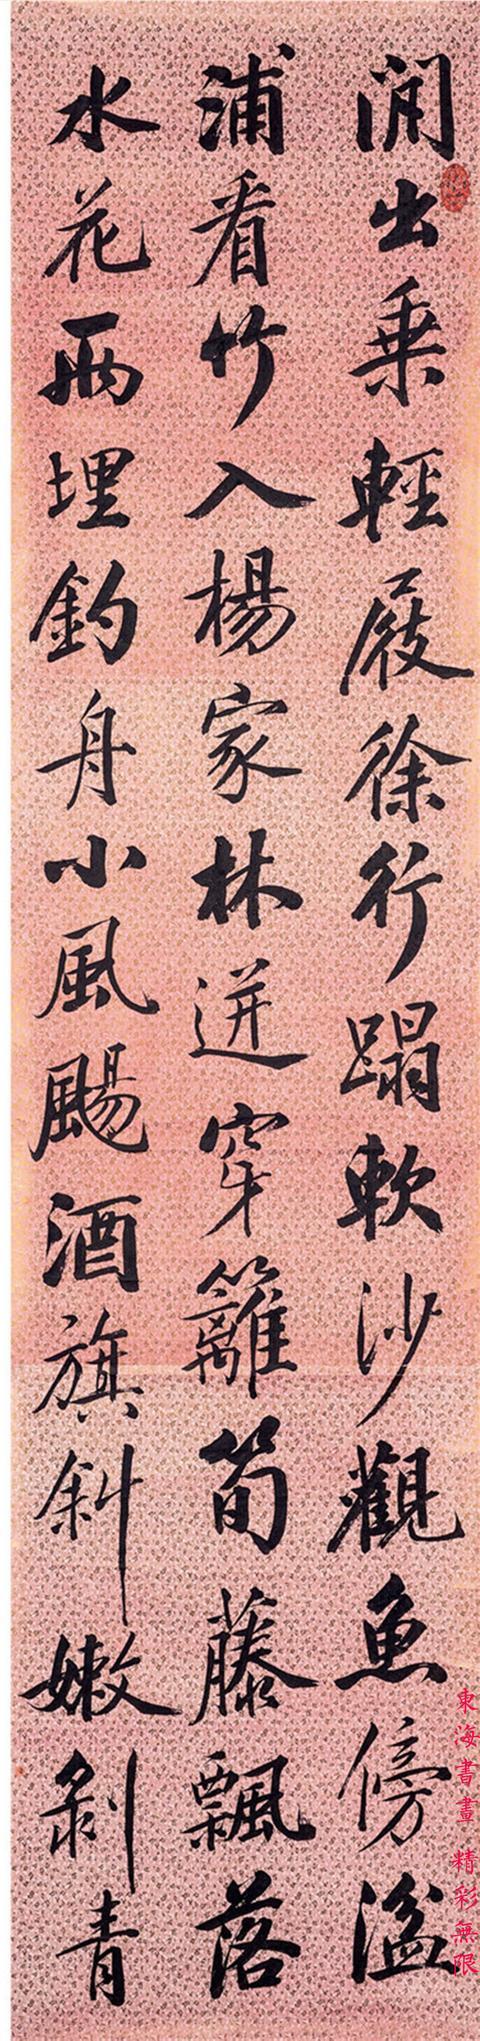 閒出乘輕屐徐行蹋軟沙觀魚傍湓
浦看竹入楊家林迸穿籬筍藤飄落
水花雨埋釣舟小風颺酒旗斜嫩剝青
東海書畫 精彩無限